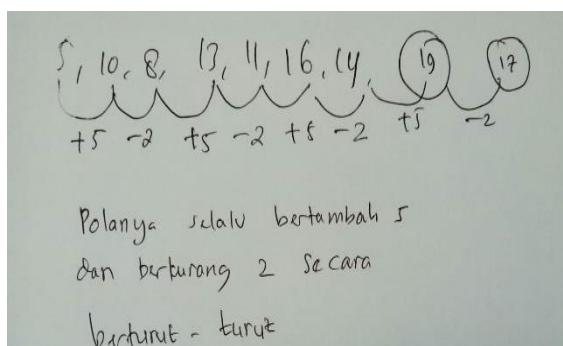 5, 10, 8, 13, 11, 16, 14, 19 17
+5 -2 +5 -2 +5 -2 +5 -2
Polanya selalu bertambah 5
dan berkurang 2 secara
berturut - turut